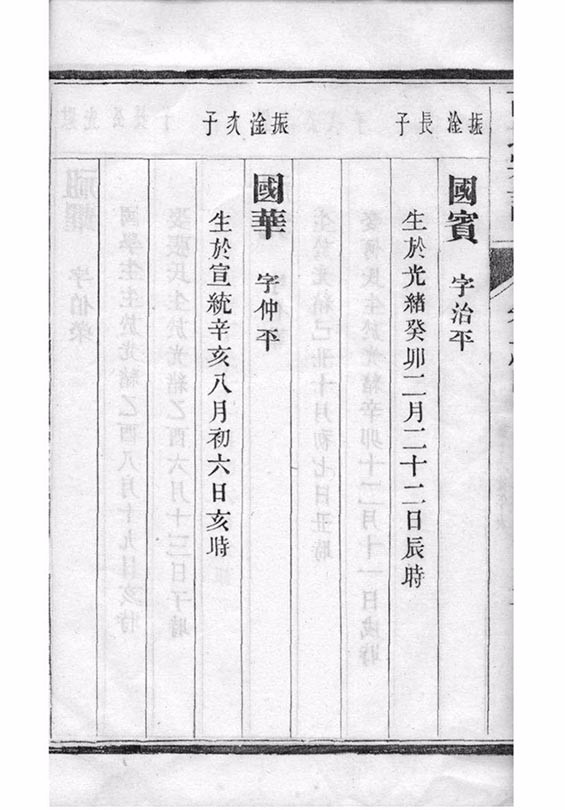 振淦長子
國賓 字治平
生於光緒癸卯二月二十二日辰時
振淦次子
國華 字仲平
生於宣統辛亥八月初六日亥時